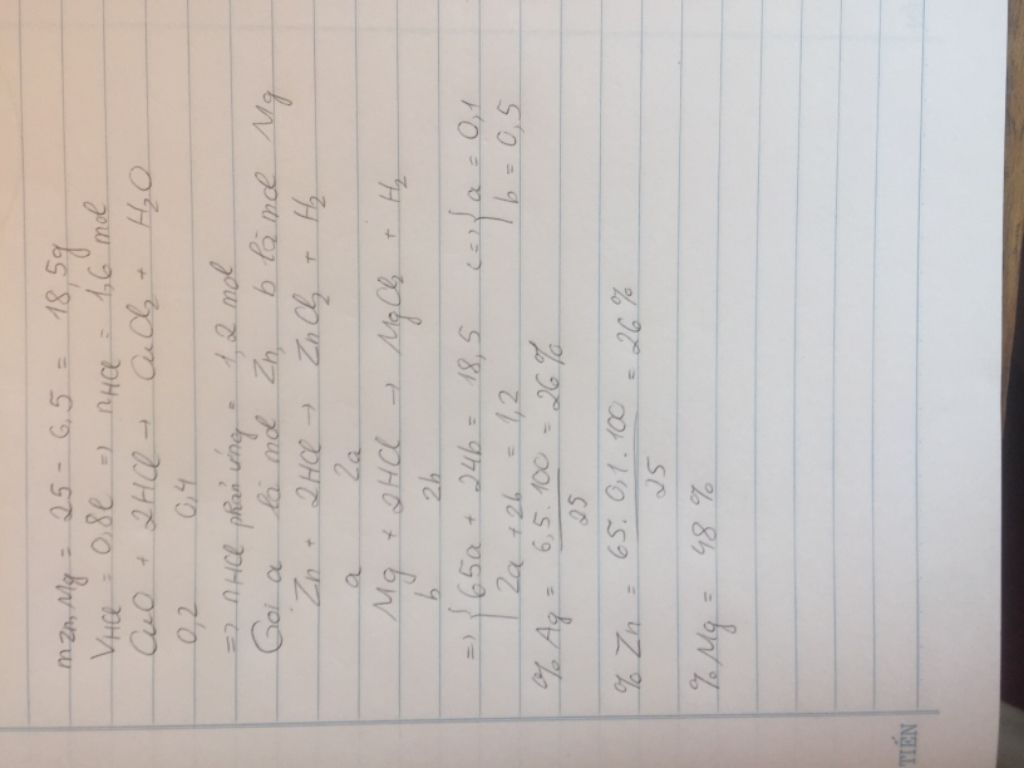 mZn,Mg = 25 - 6,5 = 18,5g
VHCl = 0,8l => nHCl = 1,6 mol
CuO + 2HCl → CuCl₂ + H₂O
0,2 0,4
=> nHCl phản ứng = 1,2 mol
Gọi a là mol Zn, b là mol Mg
Zn + 2HCl → ZnCl₂ + H₂
a 2a
Mg + 2HCl → MgCl₂ + H₂
b 2b
=> { 65a + 24b = 18,5 <=> { a = 0,1
2a + 2b = 1,2 b = 0,5
% Ag = 6,5.100 / 25 = 26%
% Zn = 65.0,1.100 / 25 = 26%
% Mg = 48 %
TIẾN